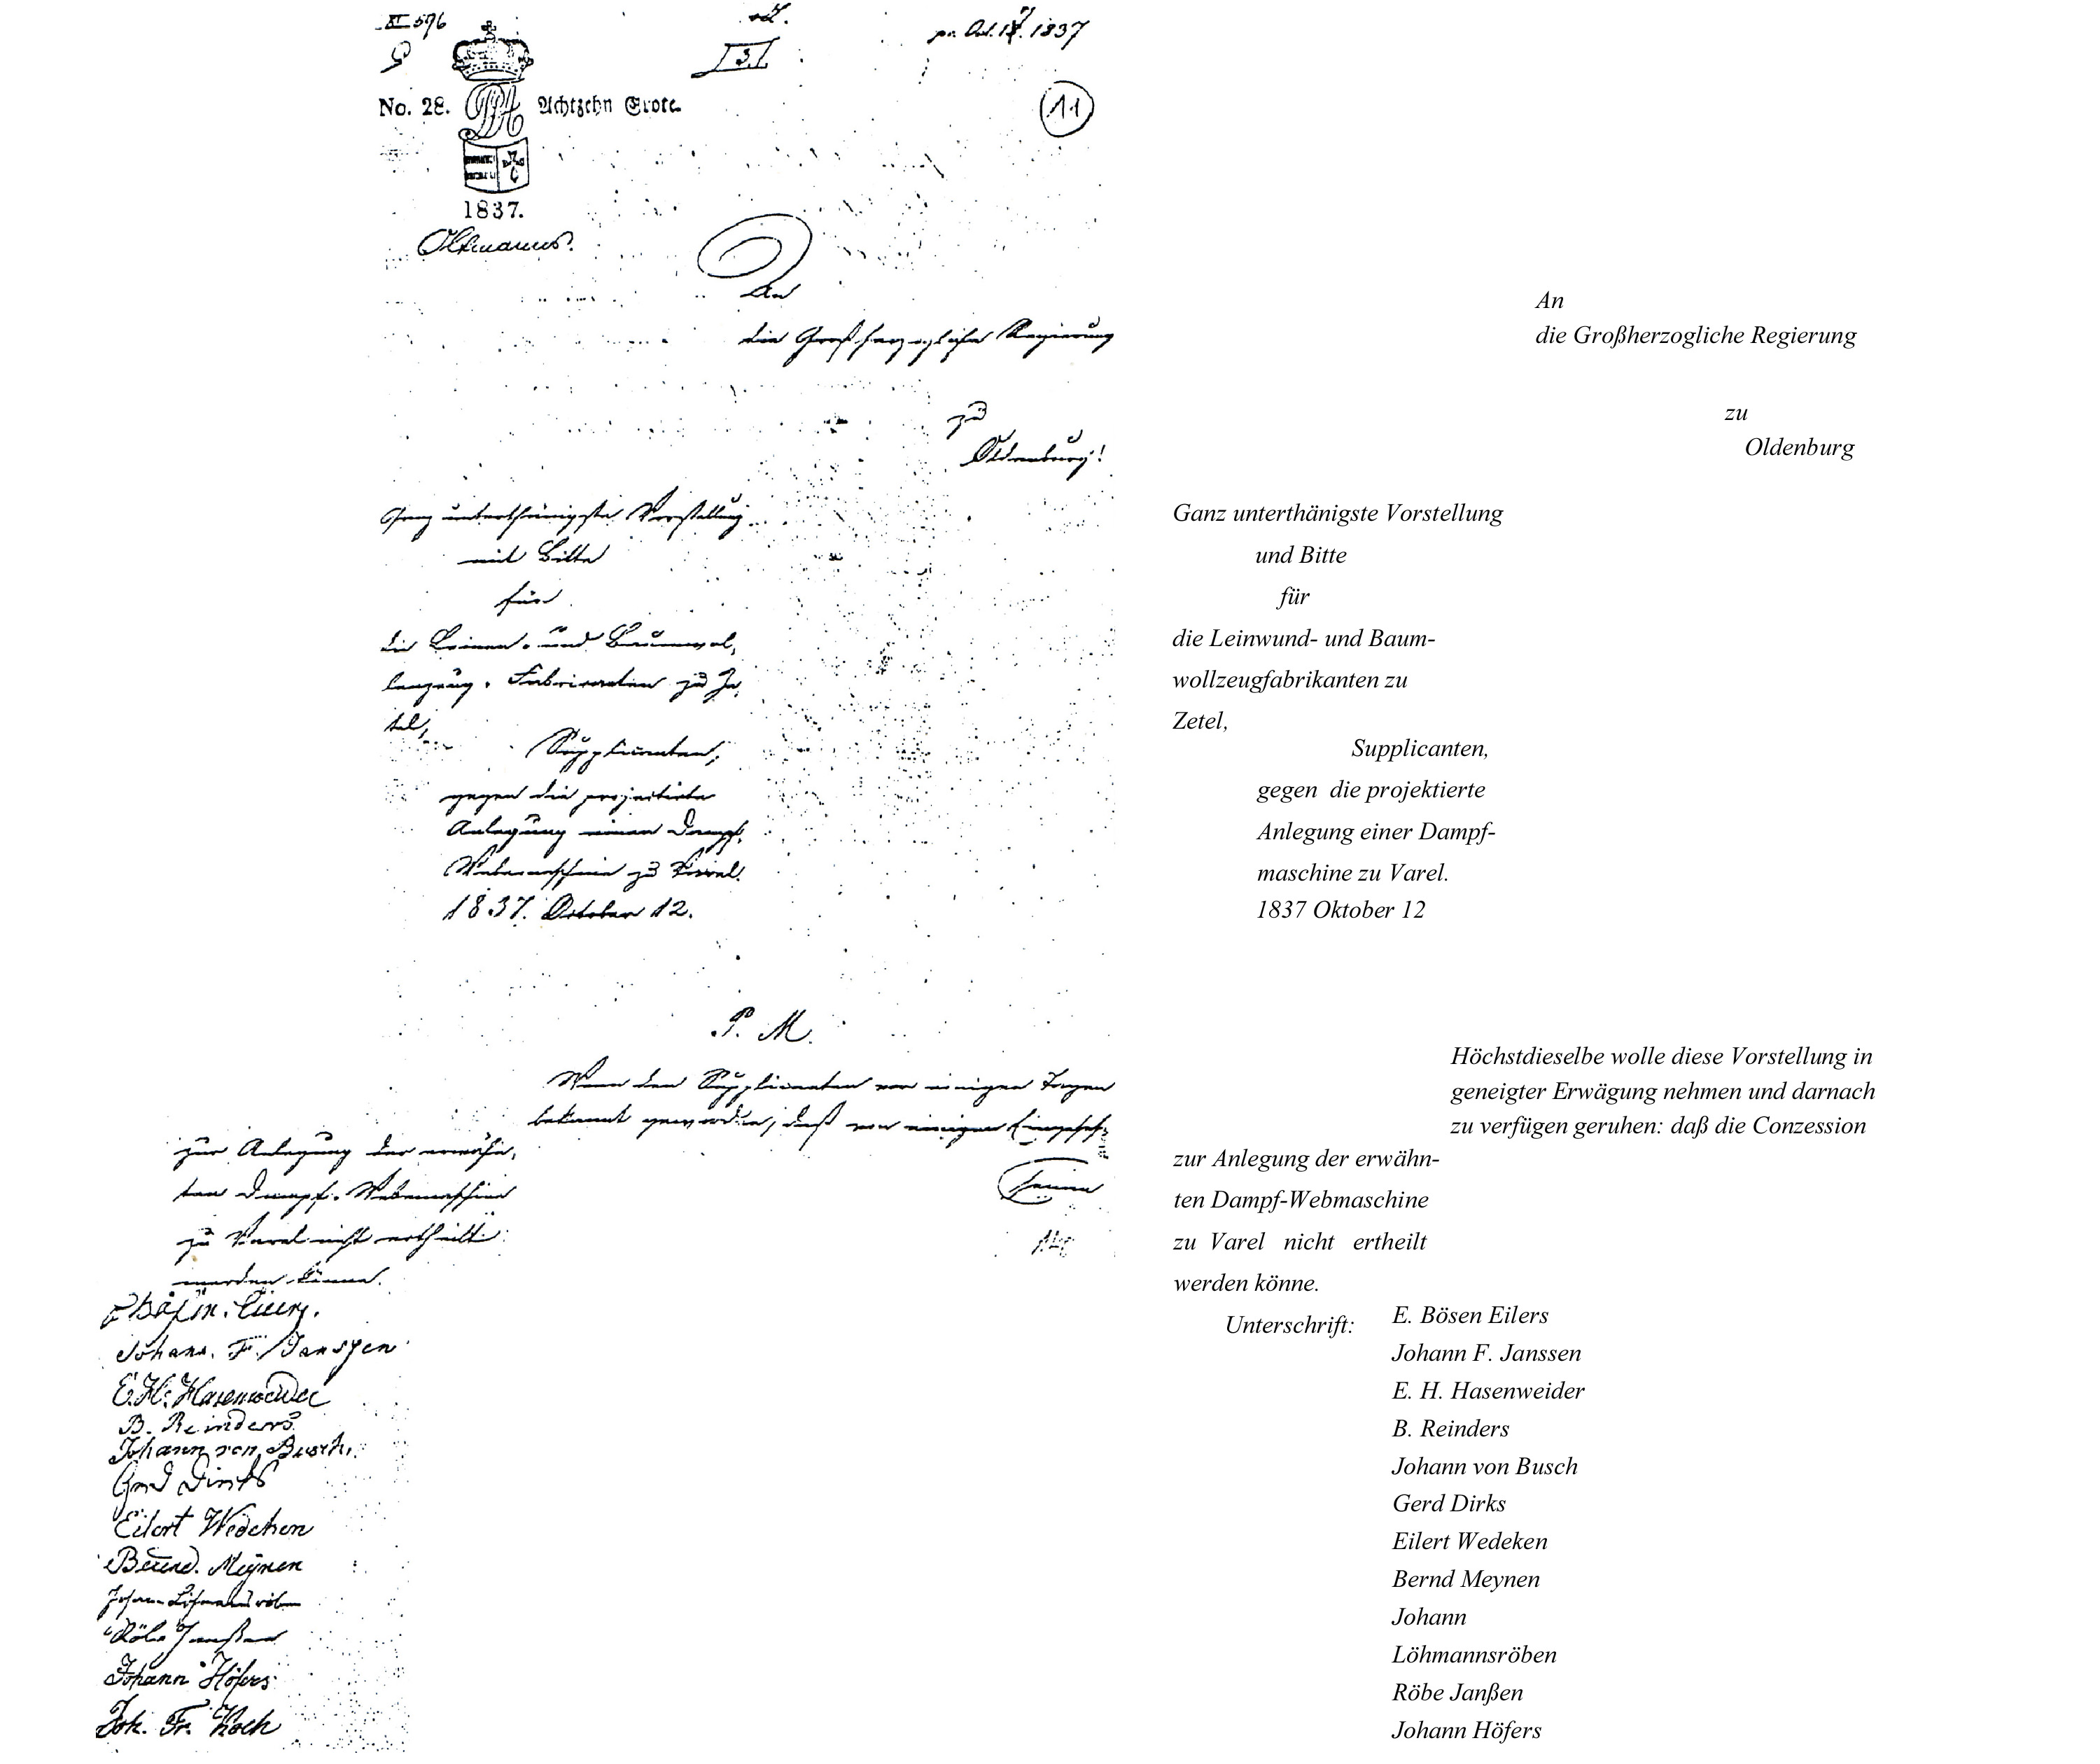 XI 596
pr. Oct. 17. 1837
No. 28. Achtzehn Grote.
11
1837.
Oltmanns.
An
die Großherzogliche Regierung
zu
Oldenburg!
Ganz unterthänigste Vorstellung
mit Bitte
für
die Leinen- und Baumwol-
lenzeug-Fabricanten zu Ze-
tel,
Supplicanten,
gegen die projectirte
Anlegung einer Dampf-
Webemaschine zu Varel.
1837. October 12.
P. M.
Wenn den Supplicanten vor einigen Tagen
bekannt geworden, daß von einigen Eingeses-
zur Anlegung der erwähn-
ten Dampf-Webemaschine
zu Varel nicht ertheilt
werden könne.
Johann. F. Janssen
E. H. Hasenweider
B. Reinders
Johann von Busch.
Gerd Dirks
Eilert Wedeken
Bernd. Meÿnen
Johann Löhmannsröben
Röbe Janßen
Johann Höfers
Joh. Fr. Koch
An
die Großherzogliche Regierung
zu
Oldenburg
Ganz unterthänigste Vorstellung
und Bitte
für
die Leinwund- und Baum-
wollzeugfabrikanten zu
Zetel,
Supplicanten,
gegen die projektierte
Anlegung einer Dampf-
maschine zu Varel.
1837 Oktober 12
Höchstdieselbe wolle diese Vorstellung in
geneigter Erwägung nehmen und darnach
zu verfügen geruhen: daß die Conzession
zur Anlegung der erwähn-
ten Dampf-Webmaschine
zu Varel nicht ertheilt
werden könne.
Unterschrift: E. Bösen Eilers
Johann F. Janssen
E. H. Hasenweider
B. Reinders
Johann von Busch
Gerd Dirks
Eilert Wedeken
Bernd Meynen
Johann
Löhmannsröben
Röbe Janßen
Johann Höfers